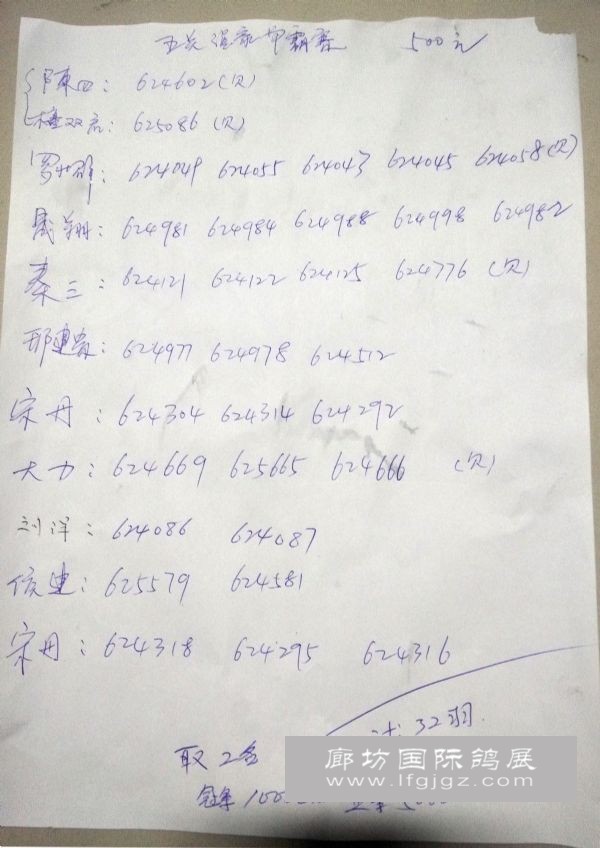 五关 500元
624602(欠)
625086 (欠)
624049 624055 624043 624045 624058(欠)
624981 624984 624988 624998 624982
秦三: 624121 624122 624125 624776 (欠)
邢建: 624977 624978 624512
宋丹: 624304 624314 624292
大力: 624669 625665 624666 (欠)
刘洋: 624086 624087
侯建: 625579 624581
宋丹: 624318 624295 624316
计: 32羽.
取2名
廊坊国际鸽展
www.lfgjgz.com
冠军